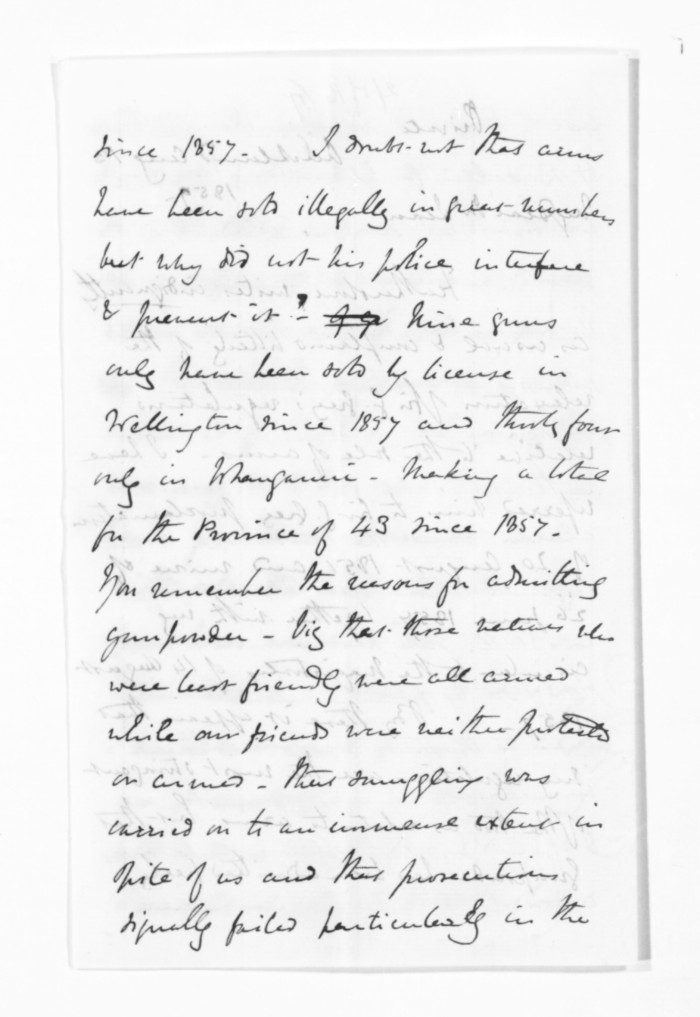 since 1857. I doubt not that arms
have been sold illegally in great numbers
but why did not his police interfere
& prevent it? - Nine guns
only have been sold by license in
Wellington since 1857 and thirty four
only in Whanganui - making a total
for the Province of 43 since 1857.
You remember the reasons for admitting
gunpowder - viz that those natives who
were least friendly were all armed
while our friends were neither protected
or armed - that smuggling was
carried on to an immense extent in
spite of us and that prosecutions
signally failed particularly in the